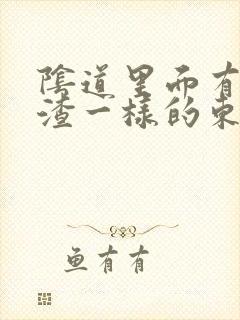 陰道里而有
渣一樣的東
鱼有有